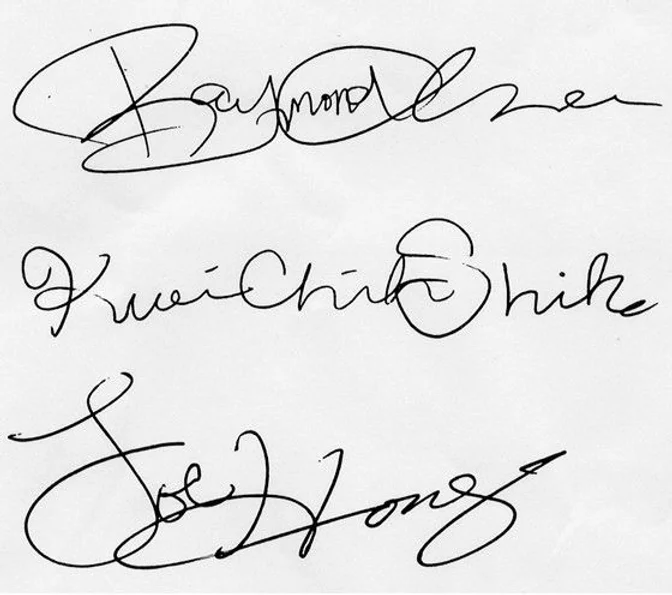 Raymond Chen
Kwei Chih Shih
Joe Hong